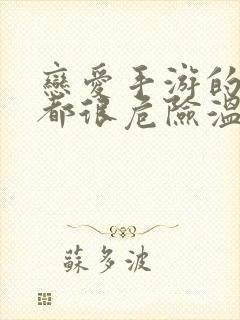 戀愛手游的
都很危險溫
蘇多波